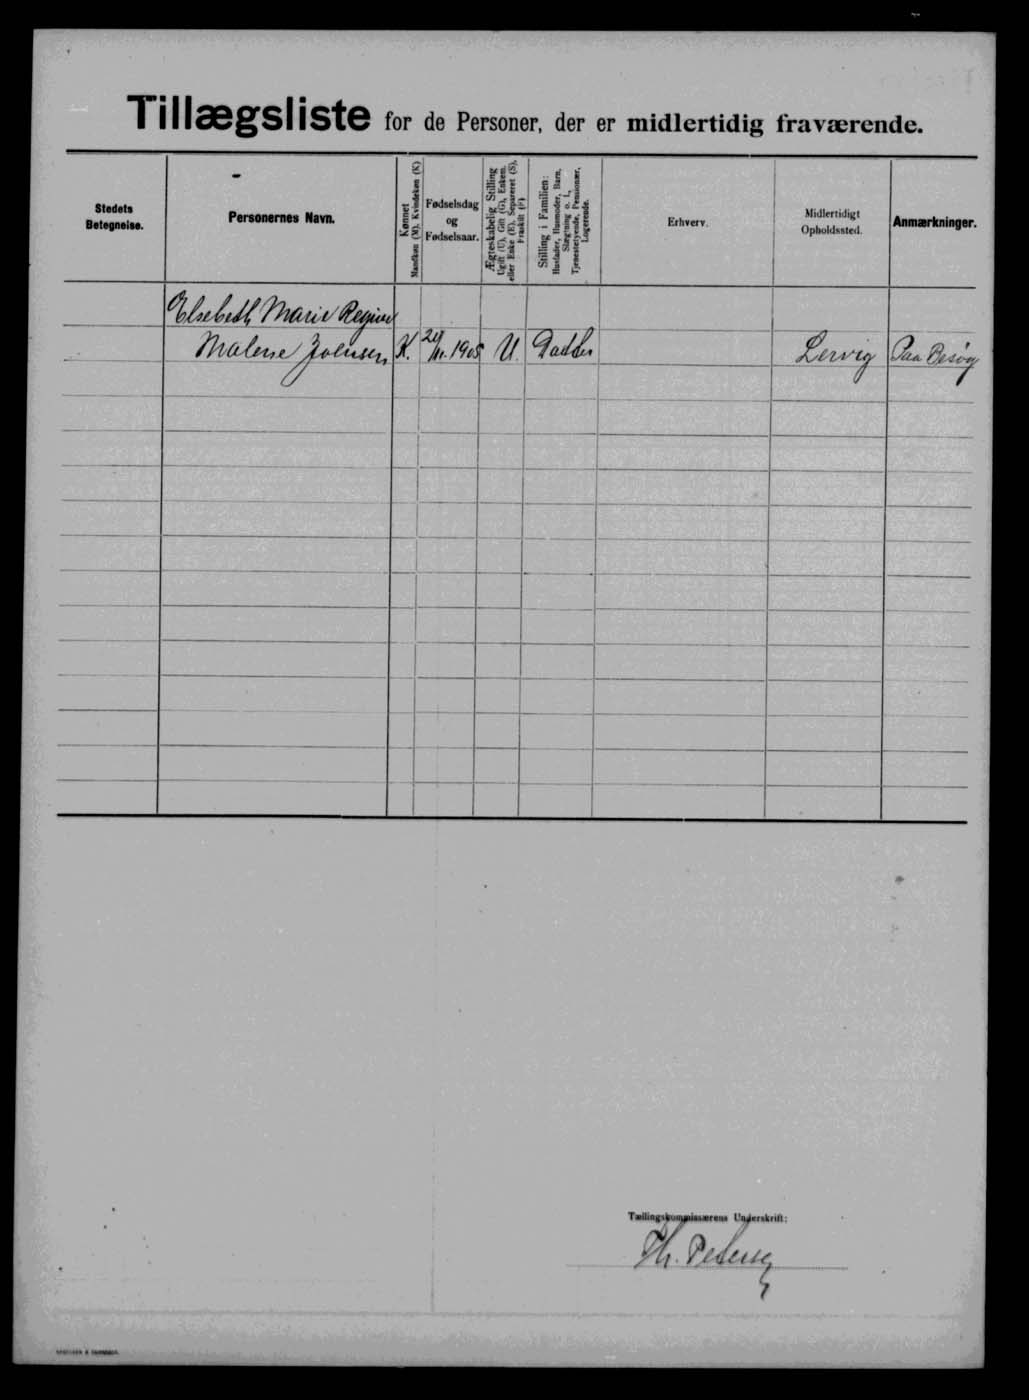 Tillægsliste for de Personer, der er midlertidig fraværende.
Stedets
Betegnelse.
Personernes Navn.
Kønnet
Mandkøn (M). Kvindekøn (K)
Fødselsdag
og
Fødselsaar.
Ægteskabelig Stilling
Ugift (U), Gift (G), Enkem.
eller Enke (E), Separeret (S),
Fraskilt (F)
Stilling i Familien:
Husfader, Husmoder, Barn,
Slægtning o. l.,
Tjenestetyende, Pensionær,
Logerende.
Erhverv.
Midlertidigt
Opholdssted.
Anmærkninger.
Elsebeth Marie
Malene Joensen K. 1905 U. Datter Lervig Paa Besøg
Tællingskommissærens Underskrift:
Petersen